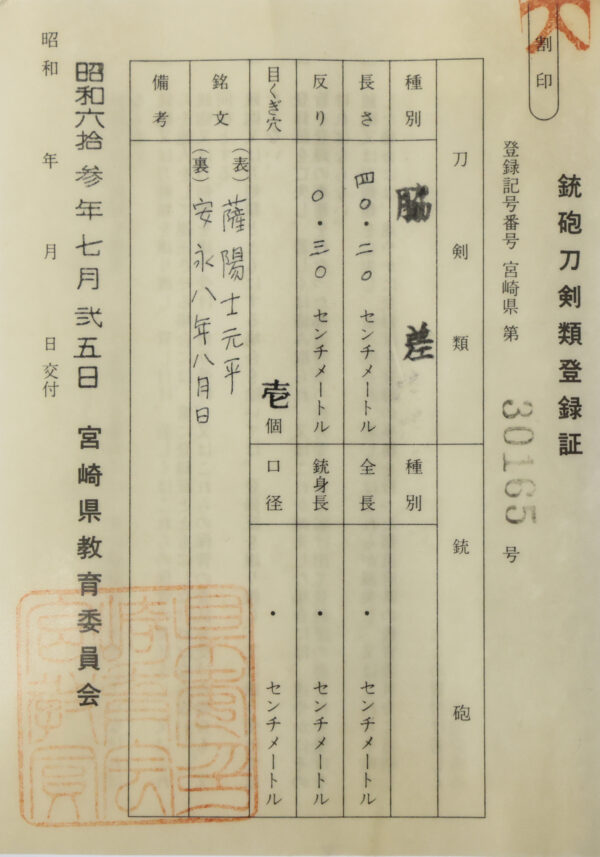 割印
銃砲刀剣類登録証
登録記号番号 宮崎県 第 30165 号
刀剣類
銃砲
種別 脇差
種別
長さ 四〇・二〇 センチメートル
全長 ・ センチメートル
反り 〇・三〇 センチメートル
銃身長 ・ センチメートル
目くぎ穴 壱個
口径 ・ センチメートル
銘文 (表) 薩陽士元平
(裏) 安永八年八月日
備考
昭和六拾参年七月弐五日 宮崎県教育委員会
昭和 年 月 日 交付